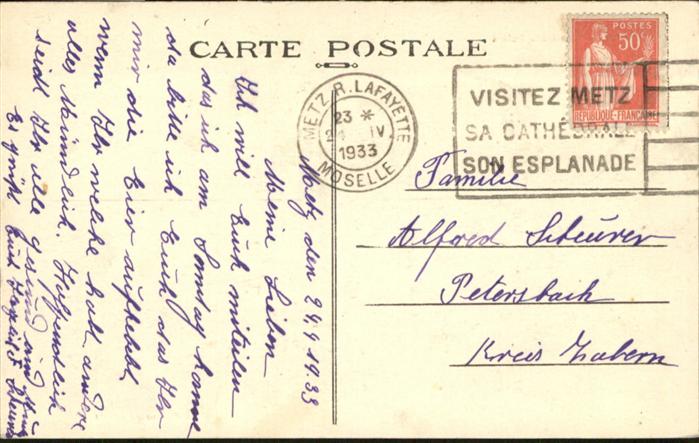 CARTE POSTALE
POSTES
50c
REPUBLIQUE FRANCAISE
METZ R. LAFAYETTE
23 *
24 IV
1933
MOSELLE
VISITEZ METZ
SA CATHÉDRALE
SON ESPLANADE
Familie
Alfred Scheurer
Petersbach
Kreis Zabern
Metz den 24.4 1933
Meine Lieben
Ich will Euch mitteilen
das ich am Sonntag komme
da bitte ich Euch das Ihr
mir die Eier aufhebt,
wenn Ihr welche habt andere
alles Mündlich. Hoffendlich
seid Ihr alle gesund und
Es grüßt Euch